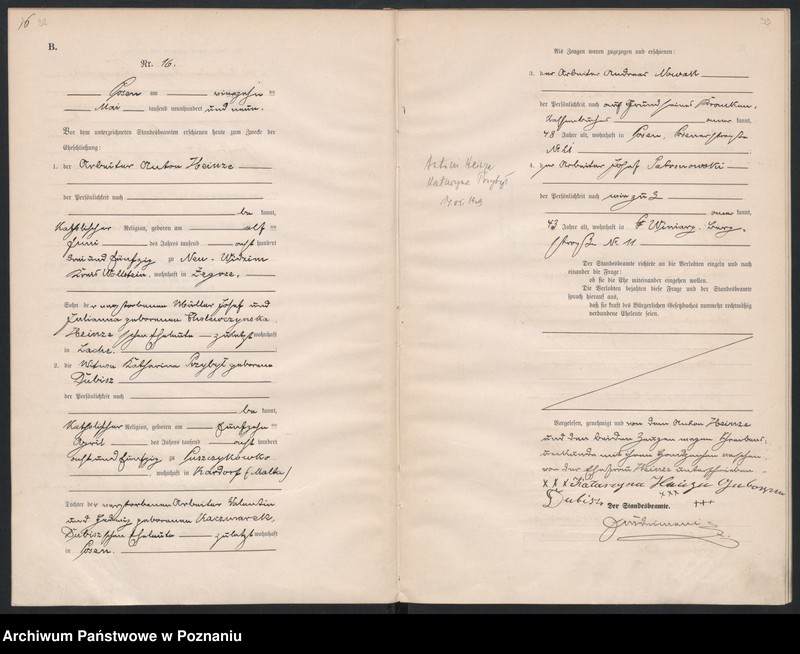 16
B.
Nr. 16.
Posen am vierzehn ten
Mai tausend neunhundert und neun.
Vor dem unterzeichneten Standesbeamten erschienen heute zum Zwecke der
Eheschließung:
1. der Arbeiter Anton Heinze
der Persönlichkeit nach
be kannt,
katholischer Religion, geboren am elf ten
Juni des Jahres tausend acht hundert
drei und fünfzig zu Neu-Widzim
Kreis Wollstein, wohnhaft in
Sohn der verstorbenen Müller Josef und
Julianna geborenen
Heinze'schen Eheleute zuletzt wohnhaft
in
2. die Witwe Katharina Przybyl geborene
Dubisz
der Persönlichkeit nach
be kannt,
katholischer Religion, geboren am fünfzehn ten
April des Jahres tausend acht hundert
acht und fünfzig zu Puszczykowko
wohnhaft in Kardorf (Malta)
Tochter der verstorbenen Arbeiter Valentin
und Hedwig geborenen Kaczmarek,
Dubisz'schen Eheleute zuletzt wohnhaft
in Posen.
Als Zeugen waren zugezogen und erschienen:
3. der Arbeiter Andreas Nowak
der Persönlichkeit nach auf Grund seines Kranken-
kassenbuches aner kannt,
48 Jahre alt, wohnhaft in Posen,
No 21
4. der Arbeiter Josef
der Persönlichkeit nach wie zu 3
aner kannt,
43 Jahre alt, wohnhaft in Winiary, Burg-
straße Nr. 11
Der Standesbeamte richtete an die Verlobten einzeln und nach
einander die Frage:
ob sie die Ehe miteinander eingehen wollen.
Die Verlobten bejahten diese Frage und der Standesbeamte
sprach hierauf aus,
daß sie kraft des Bürgerlichen Gesetzbuchs nunmehr rechtmäßig
verbundene Eheleute seien.
Vorgelesen, genehmigt und von dem Anton Heinze
und den beiden Zeugen wegen Schreibens-
unkunde mit ihren Handzeichen versehen,
von der Ehefrau Heinze unterschrieben.
x x x Katarzyna Hainze
Dubisz xxx +++
Der Standesbeamte.
Archiwum Państwowe w Poznaniu